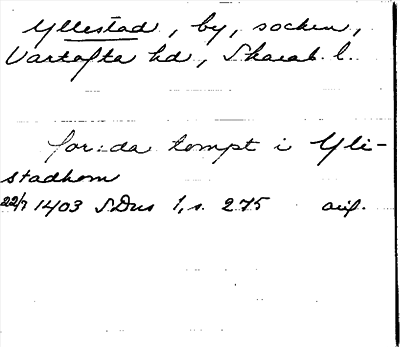 Yllestad, by, socken,
Vartofta hd, Skarab. l.
for:da tompt i Yli-
stadhom
22/7 1403 SDns 1, s. 275 avf.